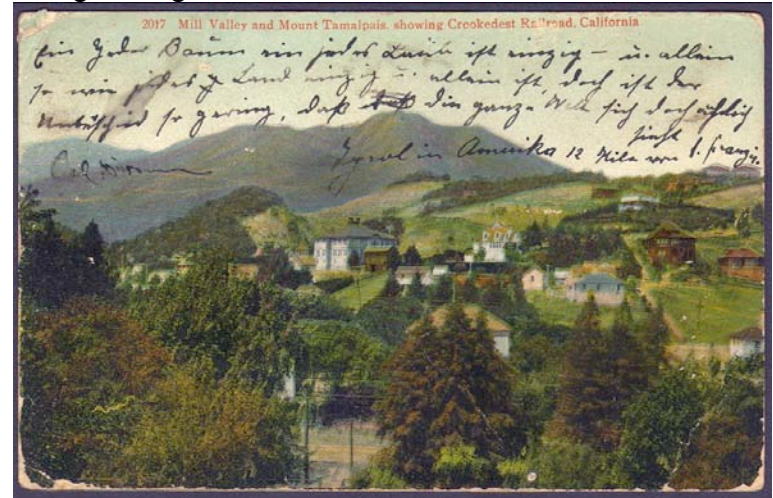 2017 Mill Valley and Mount Tamalpais, showing Crookedest Railroad, California
Ein Jeder Baum ein jedes Laub ist einzig – u. allein
so wie jedes Land einzig u. allein ist, doch ist der
so gering, daß die ganze Welt sich doch ähnlich
sieht
Tyrol in Amerika 12 Mile von S. Franzi.